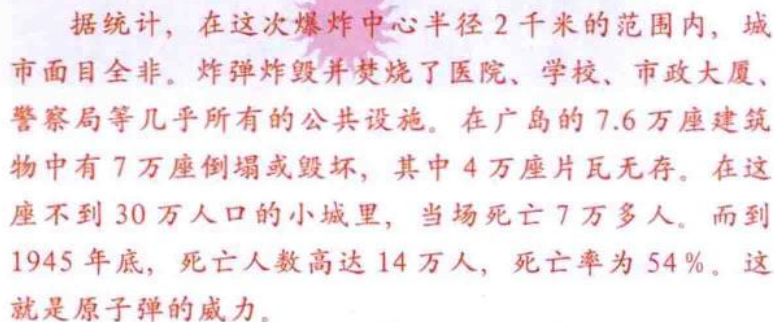 据统计，在这次爆炸中心半径 2 千米的范围内，城
市面目全非。炸弹炸毁并焚烧了医院、学校、市政大厦、
警察局等几乎所有的公共设施。在广岛的 7.6 万座建筑
物中有 7 万座倒塌或毁坏，其中 4 万座片瓦无存。在这
座不到 30 万人口的小城里，当场死亡 7 万多人。而到
1945 年底，死亡人数高达 14 万人，死亡率为 54%。这
就是原子弹的威力。